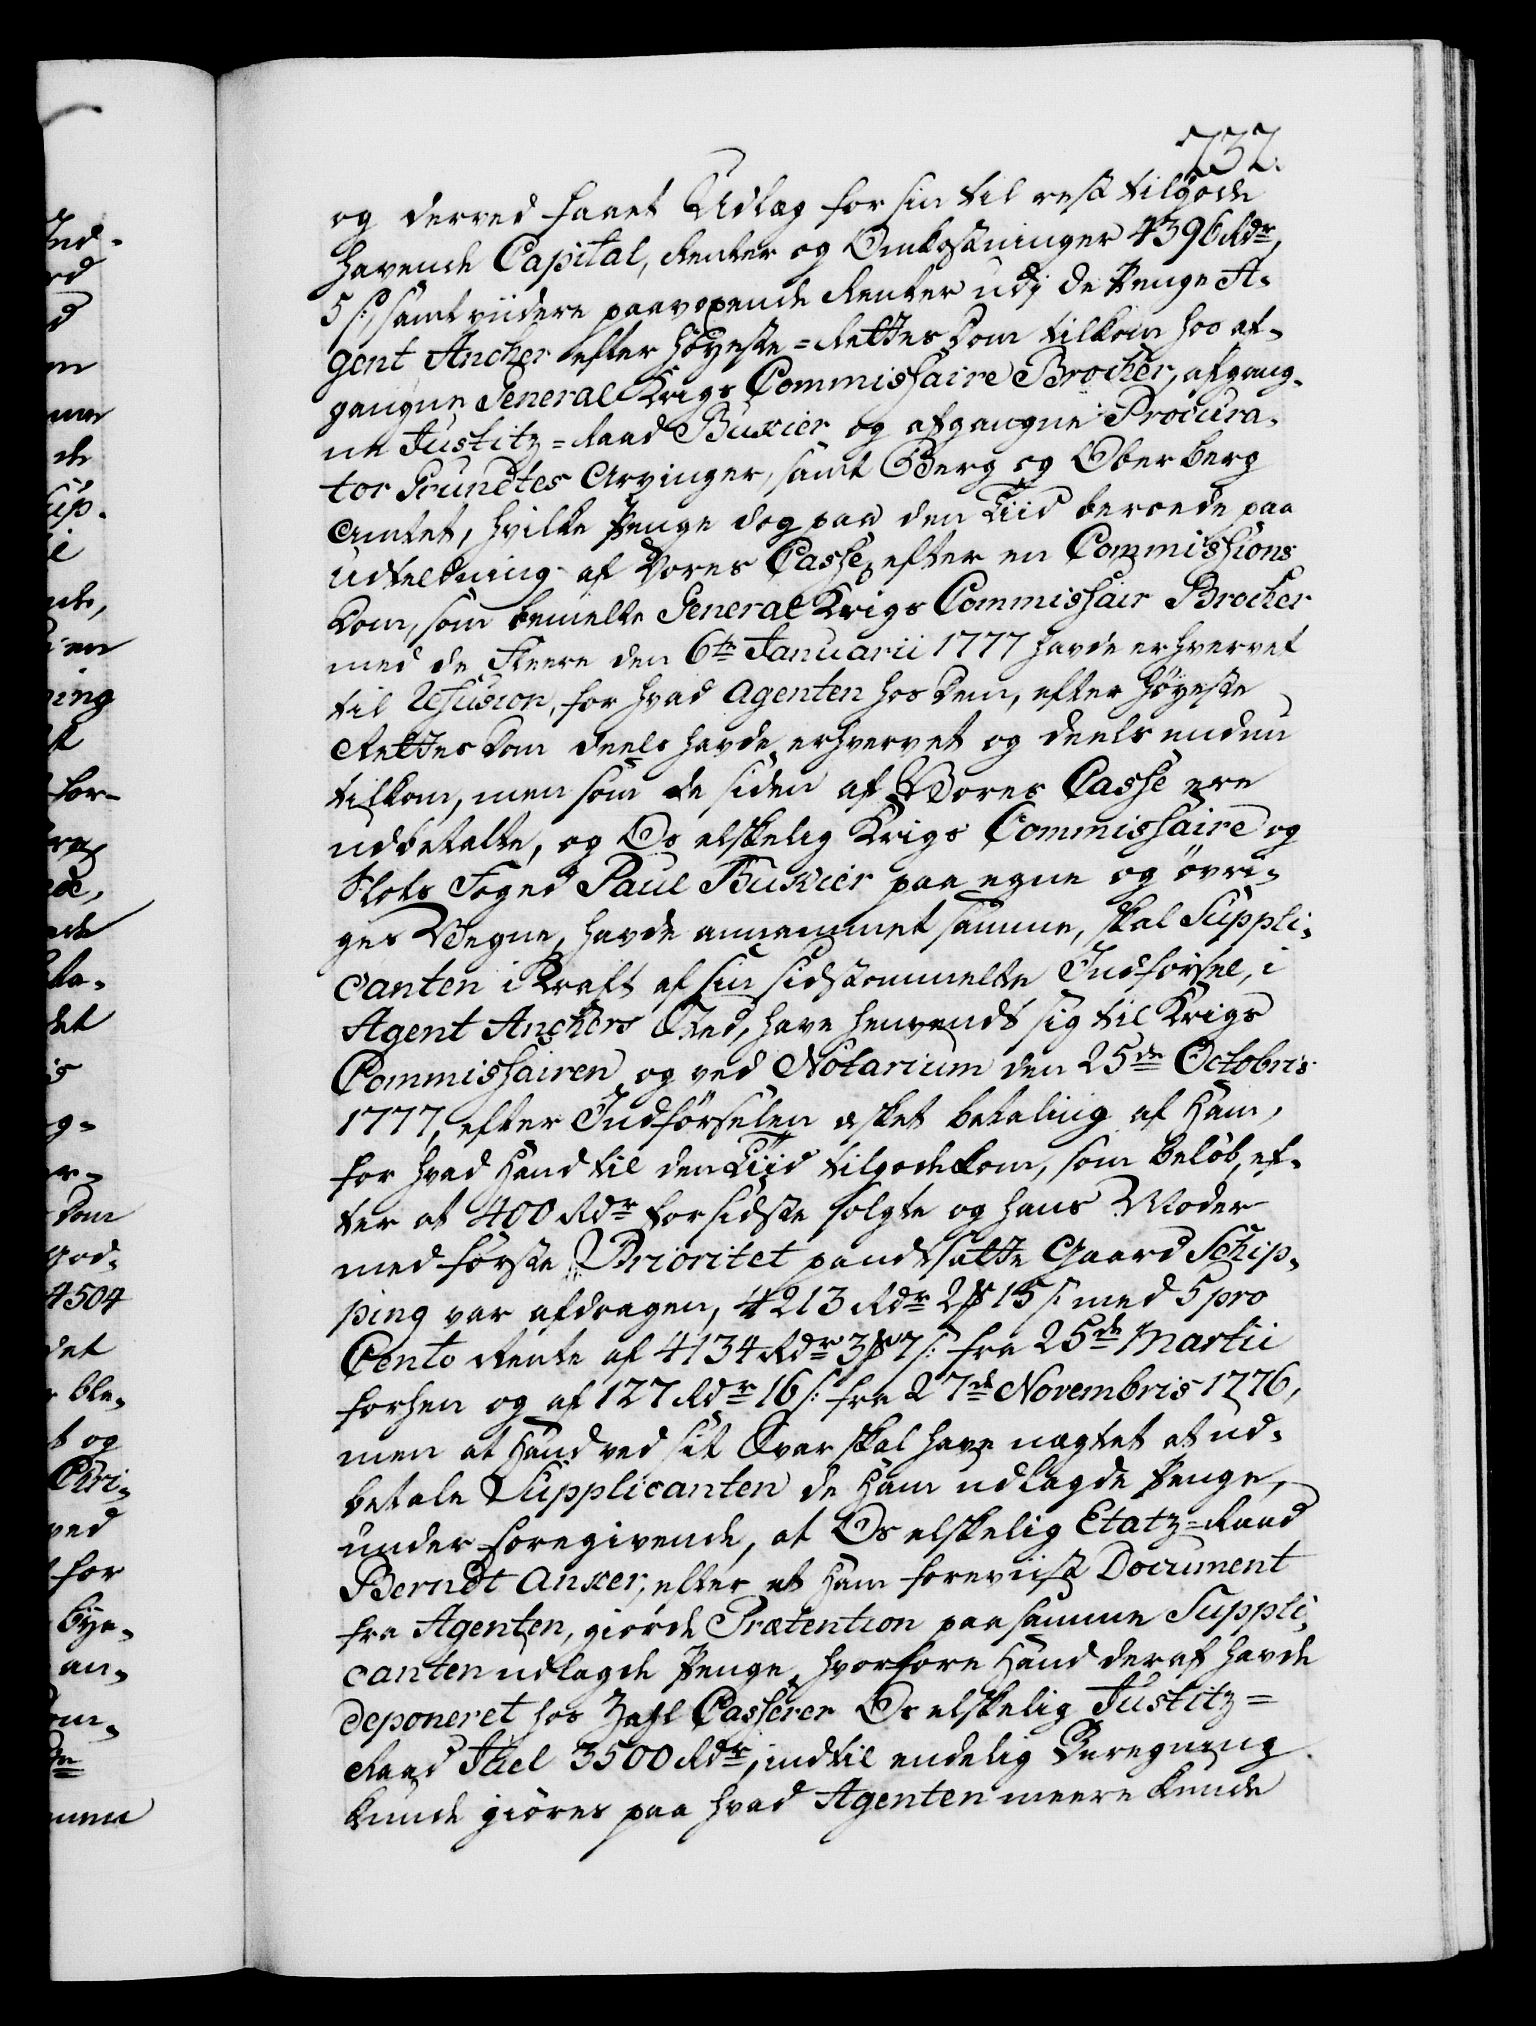 732.
og derved faaet Udlæg for sin til rest tilgode
havende Capital, Renter og Omkostninger 4396 Rdr,
5 s:, samt viidere paavoxende Renter udj de Penge A-
gent Ancher efter Høyeste-Rettes Dom tilkom hos af-
gangne General Krigs Commissaire Brocher, afgang-
ne Justitz-Raad Buxier og afgangne Procura-
tor Grundtes Arvinger, samt Berg og Oberberg
Amtet, hvilke Penge dog paa den Tiid beroede paa
udtælning af Vores Casse, efter en Commissions
Dom, som bemelte General Krigs Commissair Brocher
med de Fleere den 6te Januarii 1777 havde erhvervet
til Refusion, for hvad Agenten hos dem, efter Høyeste
Rettes Dom deels havde erhvervet og deels endnu
tilkom, men som de siden af Vores Casse ere
udbetalte, og Os elskelig Krigs Commissaire og
Slots Foged Paul Buxier paa egne og øvri-
ges Vegne, havde annammet samme, skal Suppli-
canten i Kraft af sin sidstommelte Indførsel, i
Agent Anchers Sted, have henvendt sig til Krigs
Commissairen, og ved Notarium den 25de Octobris
1777, efter Indførselen æsket betaling af Ham,
for hvad Hand til den Tiid tilgodekom, som beløb, ef-
ter at 400 Rdr for sidste solgte og hans Moder
med første Prioritet pandtsatte Gaard Schip-
ping var afdragen, 4213 Rdr 2 ß 15 s: med 5 pro
Cento Rente af 4134 Rdr 3 ß 7 s: fra 25de Martii
forhen og af 127 Rdr 16 s: fra 27de Novembris 1776,
men at Hand ved sit Svar skal have nægtet at ud-
betale Supplicanten de Ham udlagde Penge,
under foregivende, at Os elskelig Etatz-Raad
Berndt Anker, efter et Ham foreviist Document
fra Agenten, giorde Prætention paa samme Suppli-
canten udlagde Penge, hvorfore Hand deraf havde
deponeret hos Zahl Casserer Os elskelig Justitz-
Raad Juel 3500 Rdr, indtil endelig Beregning
kunde giøres paa hvad Agenten meere kunde